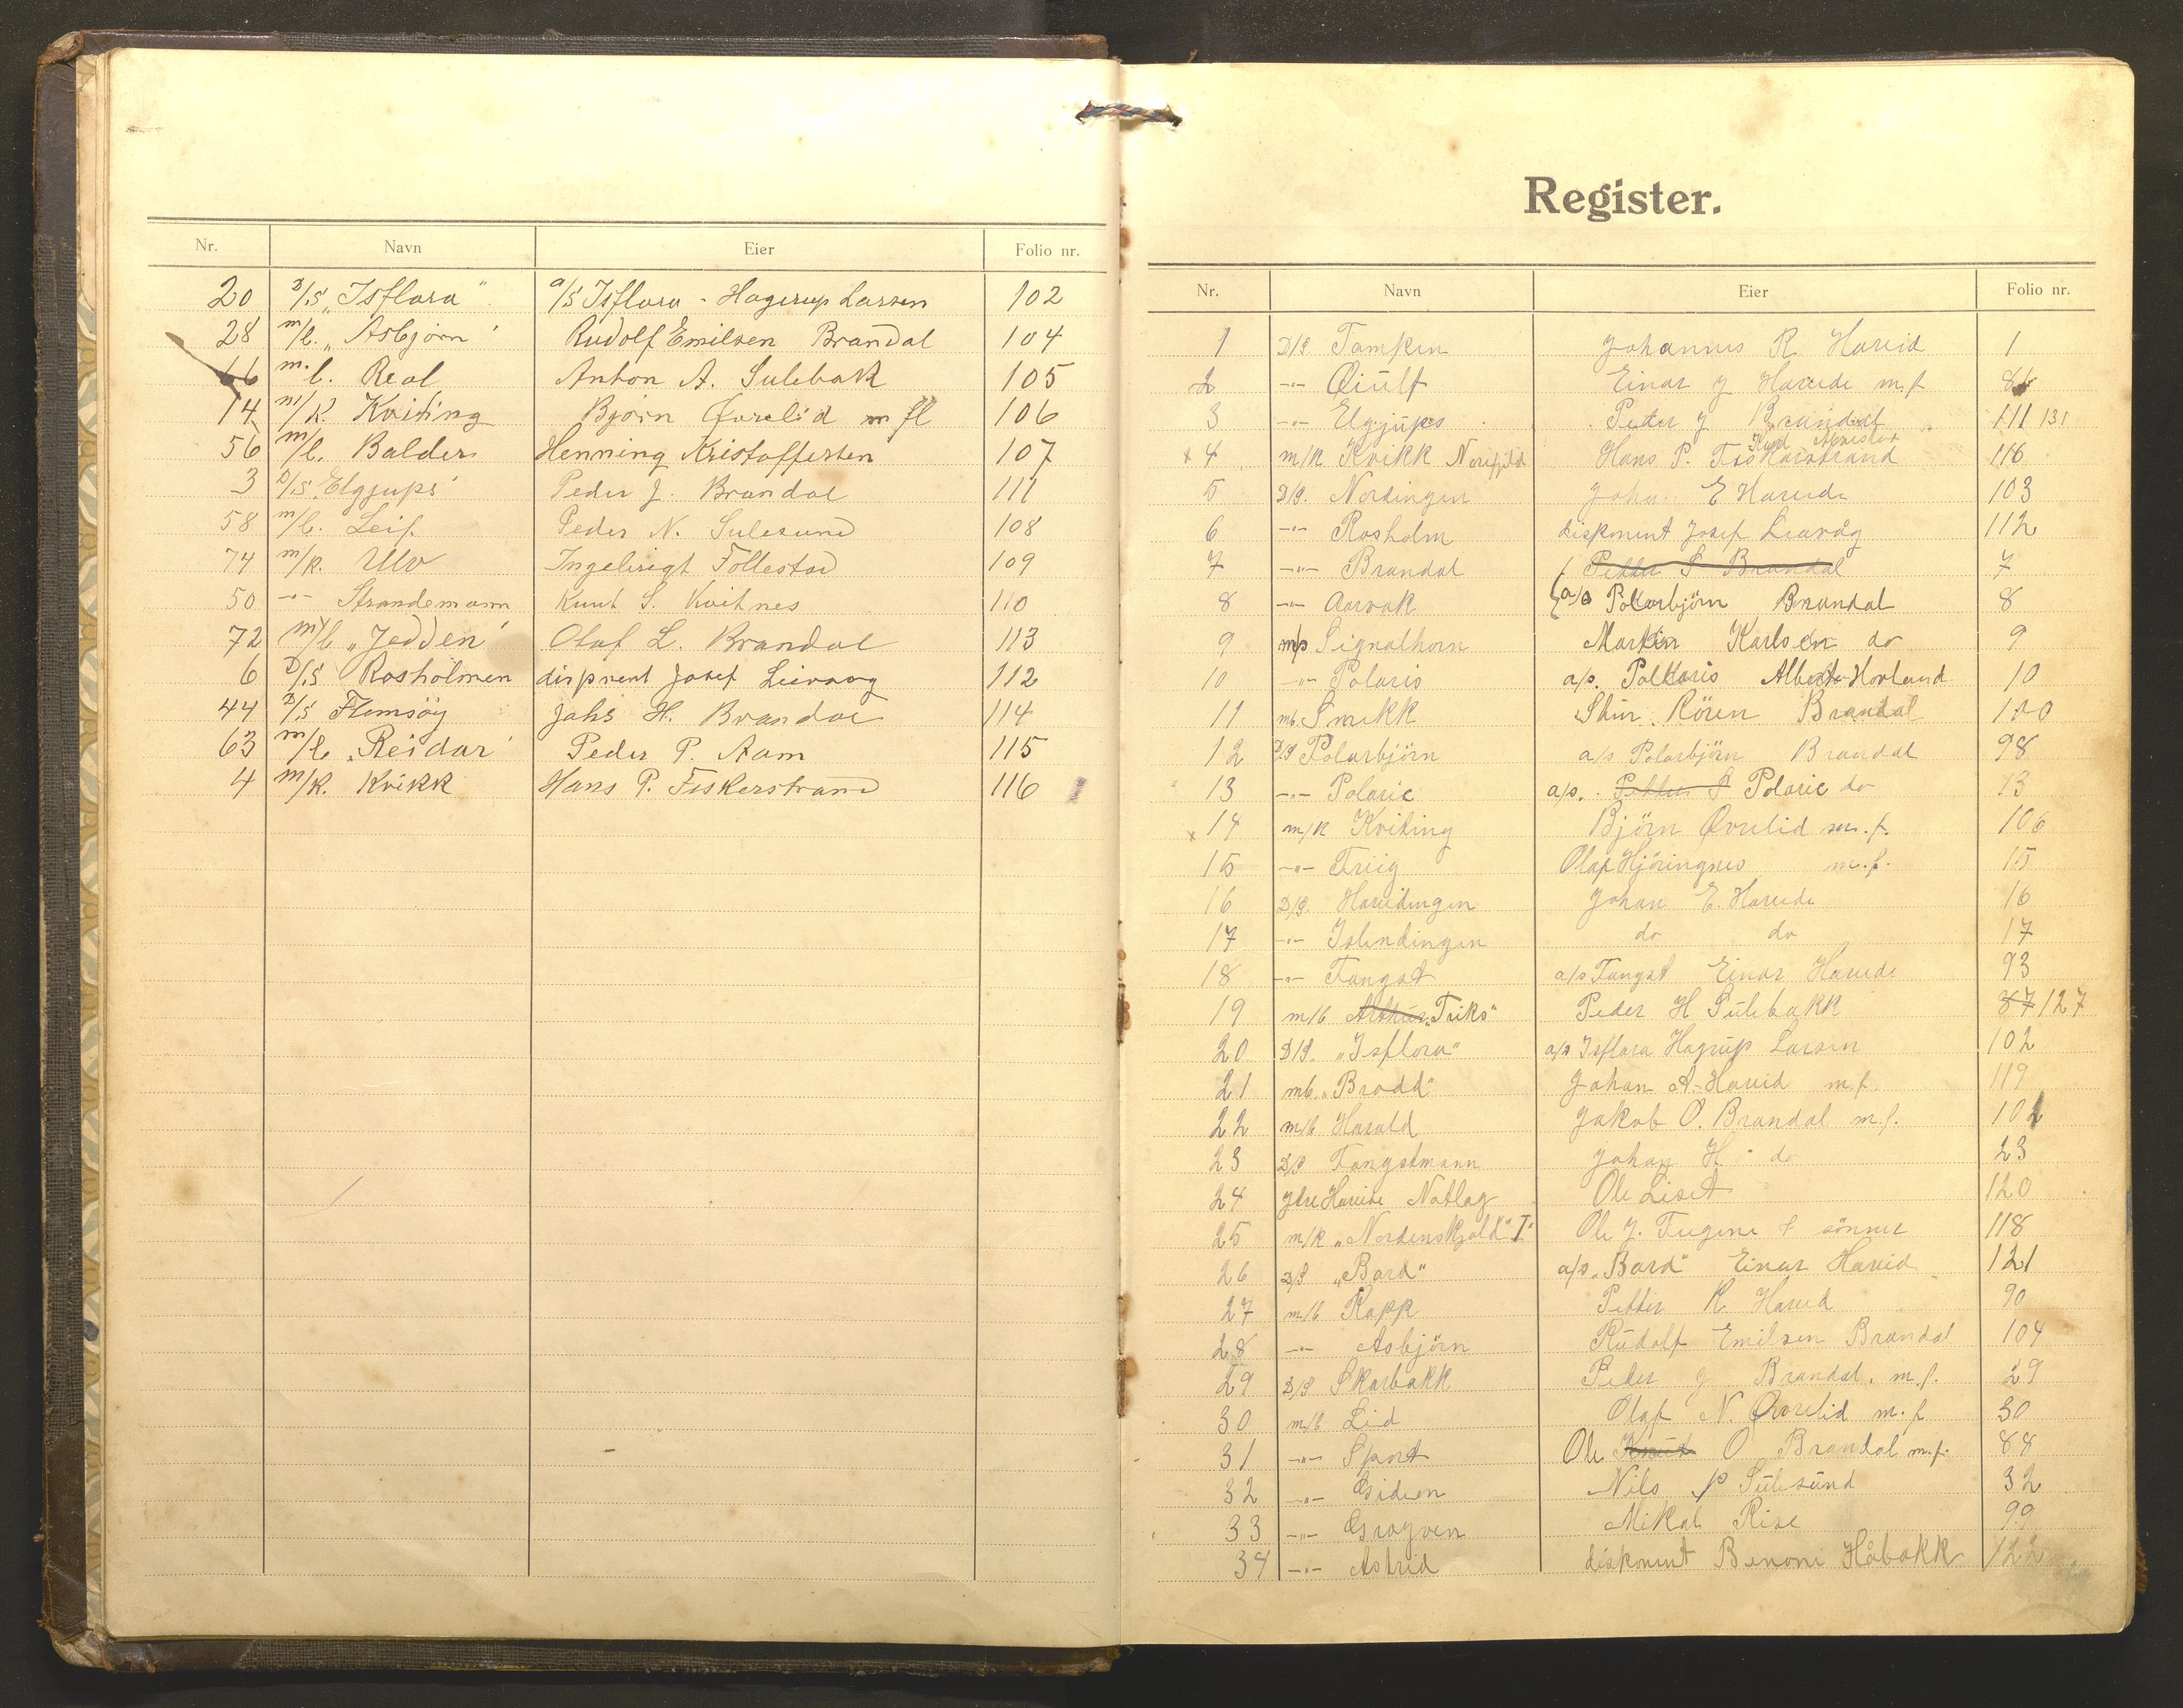 Nr. Navn Eier Folio nr.
20 D/S „Isflora" a/s Isflora - Hagerup Larsen 102
28 m/b. „Asbjørn" Rudolf Emilsen Brandal 104
66 m.b. Real Anton A. Sulebak 105
14 m/k. Kviting Bjørn Øvrelid m fl 106
56 m/b. Balder Henning Kristoffersen 107
3 D/S „Elgjups" Peder J. Brandal 111
58 m/b. Leif. Peder N. Sulesund 108
74 m/k. Ulv Ingebrigt Follestad 109
50 -"- Strandemann Knut S. Kvitnes 110
72 m/b „Jodden" Olaf L. Brandal 113
6 D/S Rosholmen disponent Josef Leivaag 112
44 D/S Flemsøy Johs H. Brandal 114
63 m/b „Reidar" Peder P. Aam 115
4 m/k. Kvikk Hans P. Fiskerstrand 116
Register.
Nr. Navn Eier Folio nr.
1 D/S Tampen Johannes R. Hareid 1
2 -"- Quilf Einar J Hareide m.f.
3 -"- Elgjups Peder J Brandal 111 131
x 4 m/k Kvikk Hans P. Fiskarstrand 116
5 D/S. Nordingen Johan E Hareide 103
6 -"- Rosholm disponent Josef Leavåg 112
7 -"- Brandal Petter S Brandal 7
8 -"- Aarvak a/s Polarbjörn Brandal 8
9 m/s Signalhorn Martin Karlsen do 9
10 -"- Polaris a/s. Polaris Hovland 10
11 mb. Smekk Rören Brandal 100
12 D/S Polarbjörn a/s Polarbjörn Brandal 98
13 -"- Polaric a/s. Petter S Polaric do 13
x 14 m/k Kviting Björn Øvrelid m.f. 106
15 -"- Trüg Olaf Hjöringnes m.f. 15
16 D/S. Hareidingen Johan E. Hareide 16
17 -"- Islendingen do do 17
18 -"- Fangst a/s Fangst Einar Hareide 93
19 m/b Arthur „Triks" Peder H Sulebakk 87 127
20 D/S. „Isflora" a/s Isflora Hagrup Larsen 102
21 mb. „Brodd" Johan A. Hareid m.f. 119
22 m/b Harald Jakob O. Brandal m.f.
23 D/S Fangstmann Johan H - do 23
24 Ytre Hareide Notlag Ole Liset 120
25 m/k „Nordenskjold" I" Ole J. & sönner 118
26 D/S „Bard" a/s „Bard" Einar Hareid 121
27 m/b Rapp Petter K Hareid 90
28 -"- Asbjörn Rudolf Emilsen Brandal 104
29 D/S Skarbakk Peder J Brandal. m.f. 29
30 m/b Lid Olaf N. Øvrelid m.f 30
31 -"- Sport Ole Knut O Brandal m.f. 88
32 -"- Gideon Nils P Sulesund 32
33 -"- Mikal Rise 99
34 -"- Astrid disponent Benoni Håbakk 122